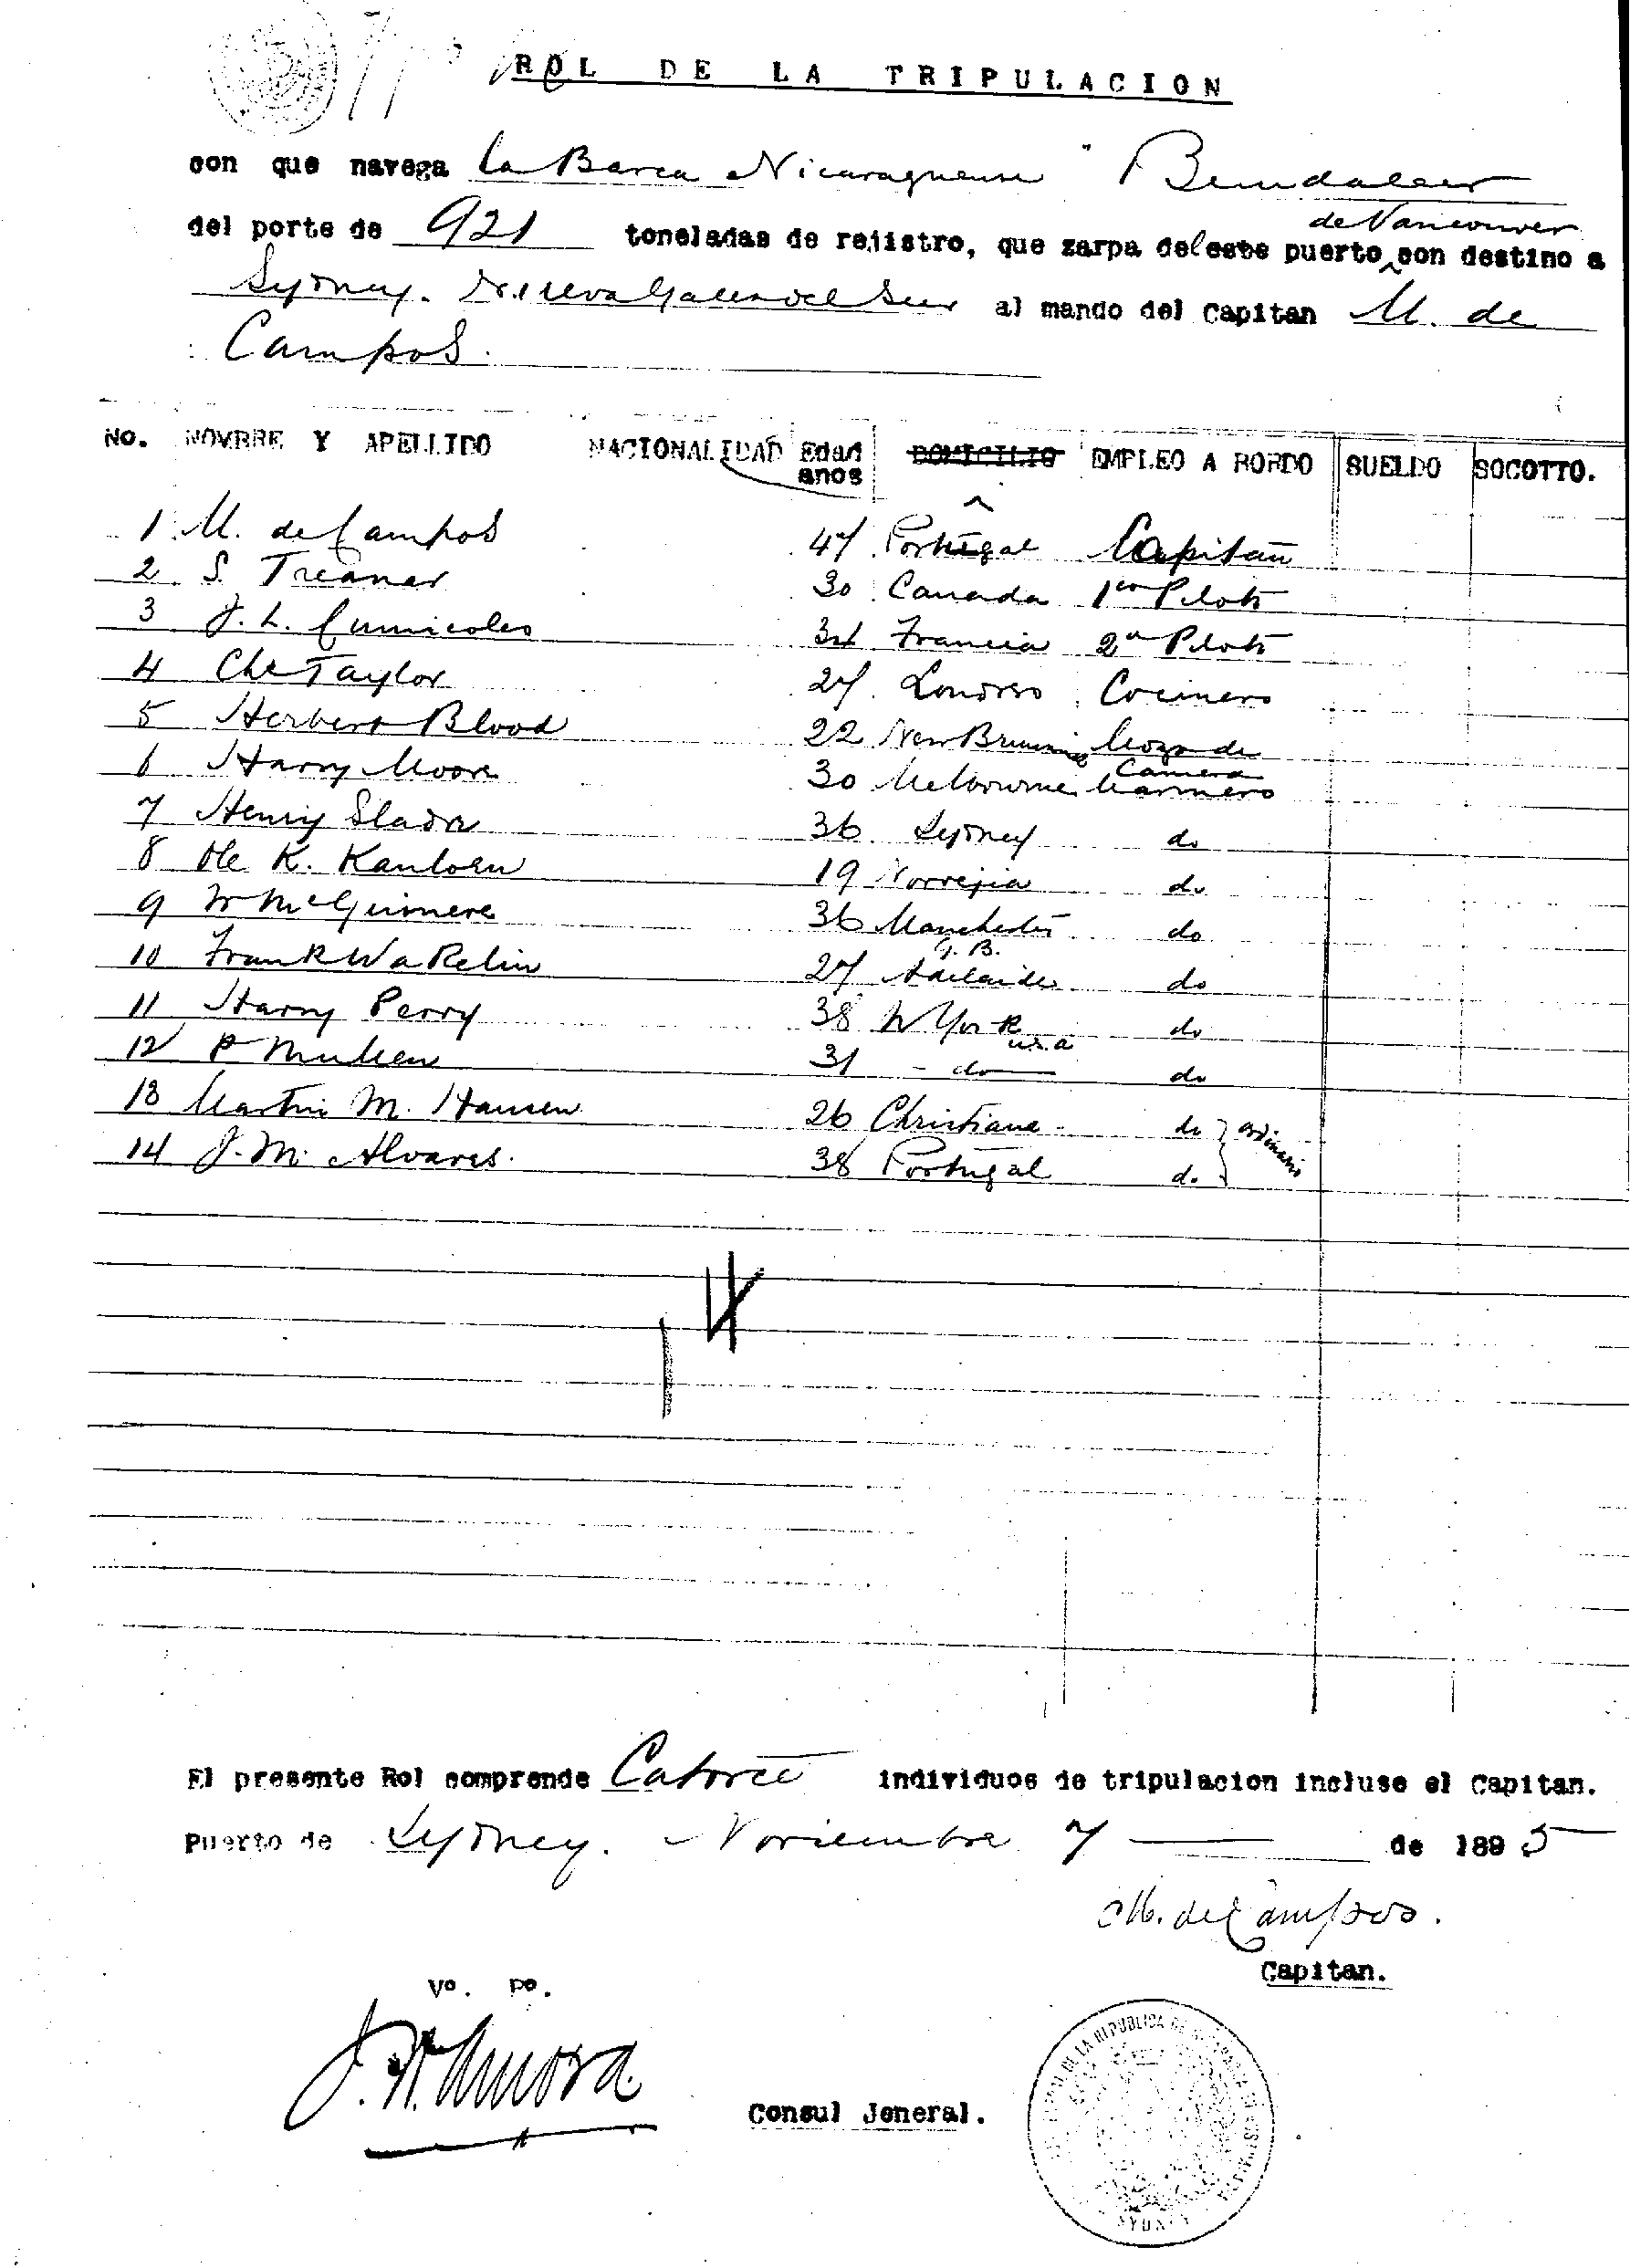 ROL DE LA TRIPULACION
con que navega la Barca Nicaraguense "
de Vancouver
del porte de 921 toneladas de rejistro, que zarpa del este puerto con destino a
Sydney. Nueva Gales del Sur al mando del Capitan M. de
Campos.
No. NOMBRE Y APELLIDO NACIONALIDAD Edad anos DOMICILIO EMPLEO A BORDO SUELDO SOCOTTO.
1 M. de Campos 47 Portugal Capitan
2 S. Treanor 30 Canada 1er Piloto
3 J. L. 34 Francia 2o Piloto
4 Chs Taylor 27 Londres Cocinero
5 Herbert Blood 22 New Brunsw Mozo de
Camera
6 Harry Moore 30 Melbourne Marinero
7 Henry Slade 36 Sydney do
8 Ole K. 19 Noruejia do
9 W McGuinere 36 Manchester do
G. B.
10 Frank Wakelin 27 Adelaide do
11 Harry Perry 38 N York do
U.S.A
12 P Mullen 31 - do do
13 Martin M. Hansen 26 Christiana - do } ordinario
14 J. M. Alvares. 38 Portugal do
14
El presente Rol comprende Catorce individuos de tripulacion incluse el Capitan.
Puerto de Sydney. Noviembre 7 de 1895
M. de Campos.
Capitan.
Vo. Po.
Consul Jeneral.